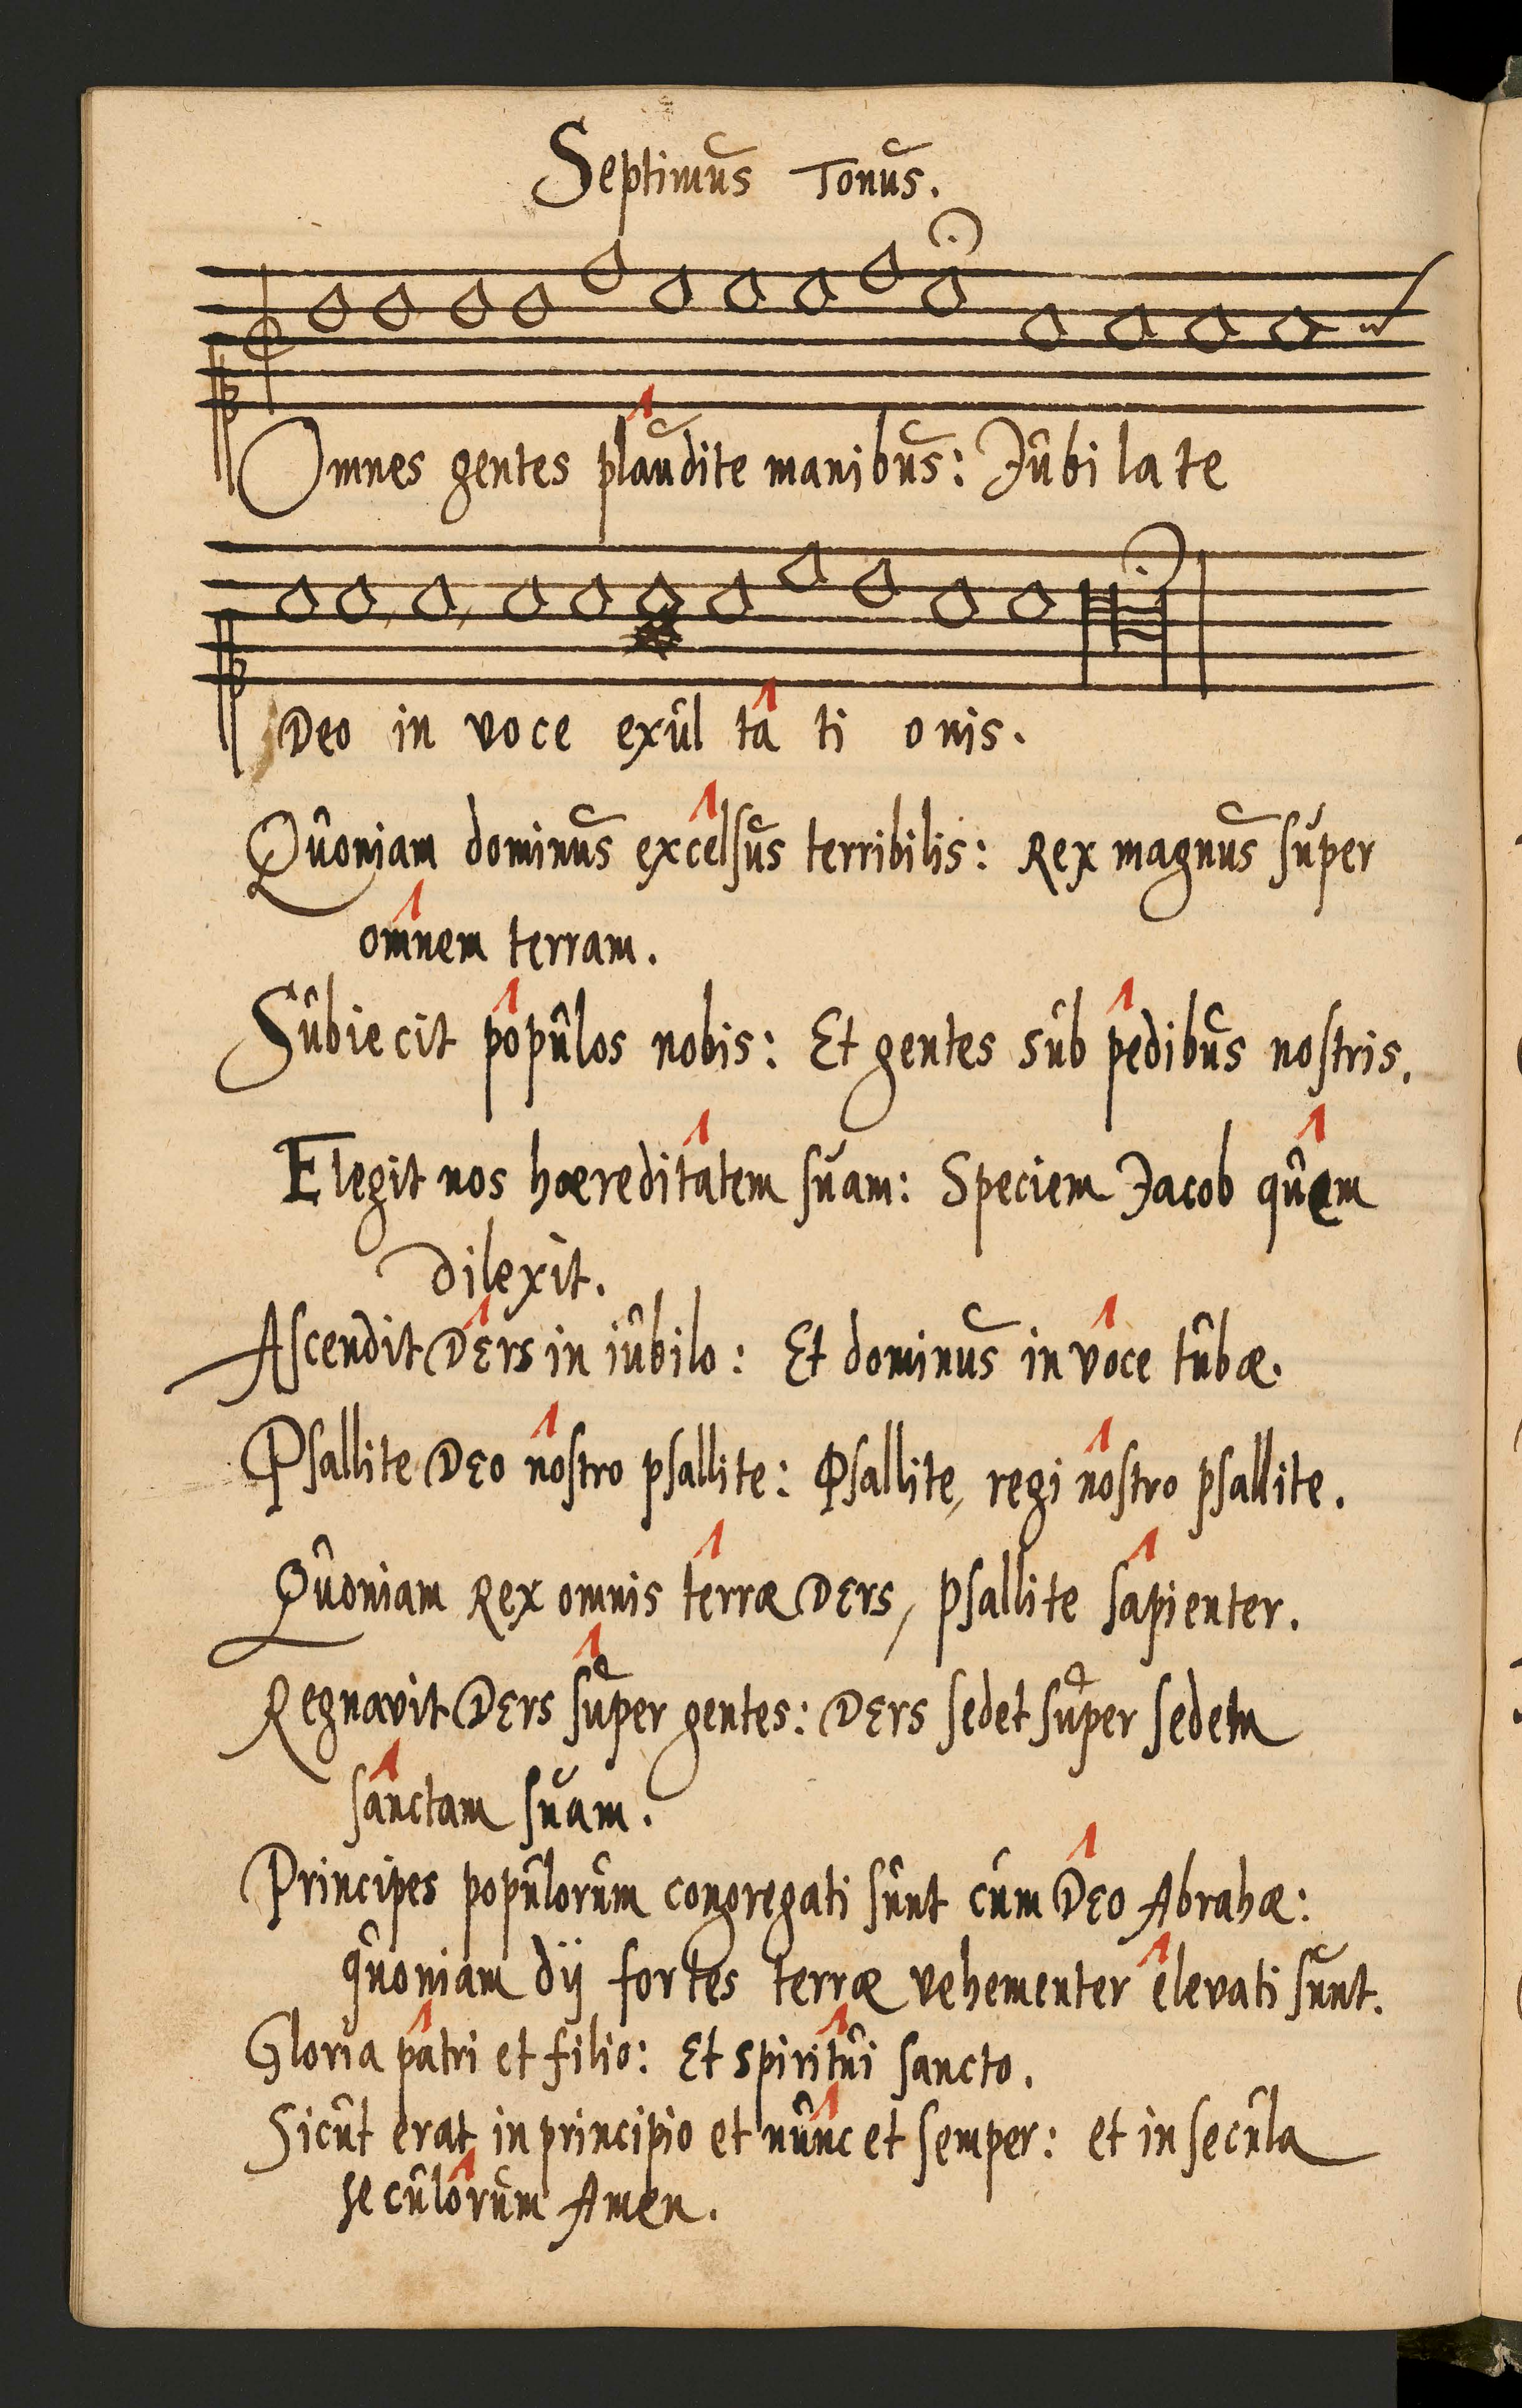 Septimus Tonus.
Omnes gentes plaudite manibus: Jubi la te
Deo in voce exul ta ti onis.
Quoniam dominus excelsus terribilis: Rex magnus super
omnem terram.
Subiecit populos nobis: Et gentes sub pedibus nostris.
Elegit nos haereditatem suam: Speciem Jacob quem
dilexit.
Ascendit DEVS in iubilo: Et dominus in voce tubæ.
Psallite DEO nostro psallite: Psallite, regi nostro psallite.
Quoniam Rex omnis terræ DEVS, psallite sapienter.
Regnavit DEVS super gentes: DEVS sedet super sedem
sanctam suam.
Principes populorum congregati sunt cum DEO Abrahæ:
quoniam dij fortes terræ vehementer elevati sunt.
Gloria patri et filio: Et spiritui sancto.
Sicut erat in principio et nunc et semper: et in secula
seculorum Amen.